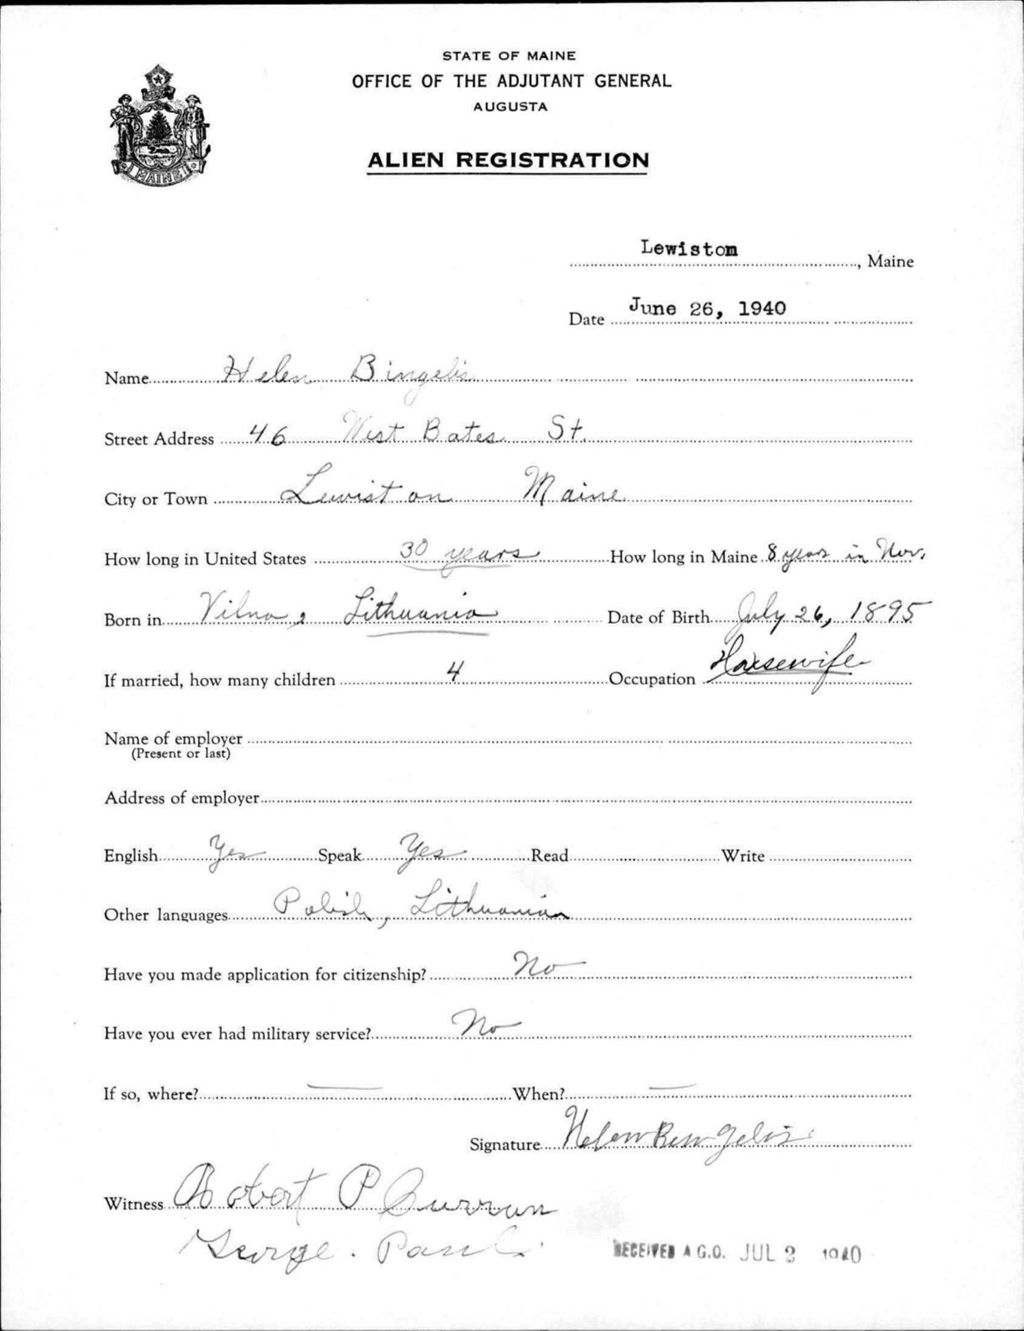 STATE OF MAINE
OFFICE OF THE ADJUTANT GENERAL
AUGUSTA
MAINE
ALIEN REGISTRATION
Lewiston, Maine
Date June 26, 1940
Name Helen Bingelis
Street Address 46 West Bates St.
City or Town Lewiston Maine
How long in United States 30 years How long in Maine 8 years in Nov.
Born in Vilna, Lithuania Date of Birth July 26, 1895
If married, how many children 4 Occupation Housewife
Name of employer
(Present or last)
Address of employer
English Yes Speak Yes Read Write
Other languages Polish, Lithuanian
Have you made application for citizenship? No
Have you ever had military service? No
If so, where? — When? —
Signature Helen Bingelis
Witness Robert P Curran
George
RECEIVED A.G.O. JUL 1940